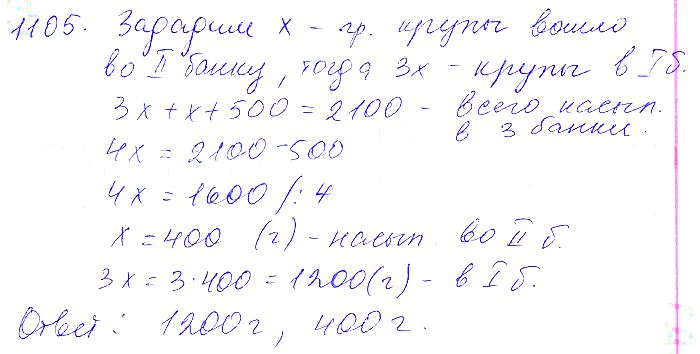 1105. Зададим x - гр. крупы вошло
во II банку, тогда 3x - крупы в I б.
3x + x + 500 = 2100 - всего насып.
в 3 банки.
4x = 2100 - 500
4x = 1600 /: 4
x = 400 (г) - насып. во II б.
3x = 3·400 = 1200(г) - в I б.
Ответ: 1200г, 400г.